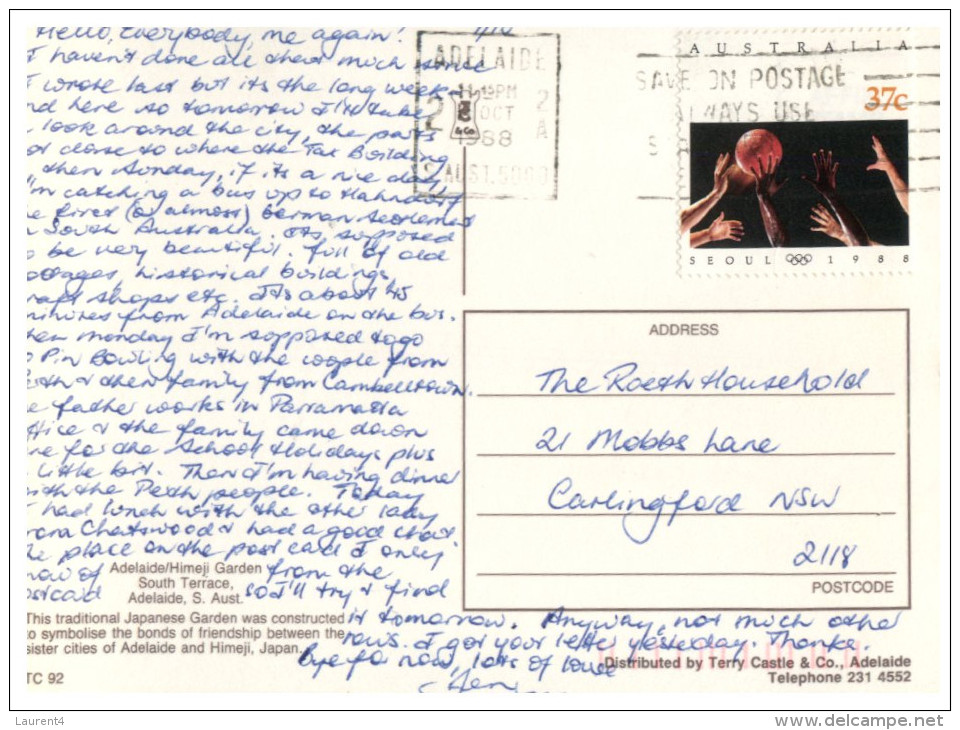 Hello, Everybody, me again! 1/10
I haven't done all that much since
I wrote last but its the long week-
nd here so tomorrow I'll take
look around the city, the parts
ot close to where the Tax Building
then Sunday, if its a nice day,
I'm catching a bus up to Hahndorf
e first (or almost) German settlement
South Australia. Its supposed
o be very beautiful. full of old
ottages, historical buildings,
raft shops etc. It's about 45
minutes from Adelaide on the bus.
hen monday I'm supposed to go
Pin Bowling with the couple from
erth & then family from Cambelltown.
e father works in Parramatta
ffice & the family came down
re for the School Holidays plus
little bit. Then I'm having dinner
with the Perth people. Today
I had lunch with the other lady
from Chatswood & had a good chat.
he place on the post card I only
now of from the
ostcard so I'll try & find
it tomorrow. Anyway, not much other
news. I got your letter yesterday. Thanks.
Bye for now, lots of love
ADELAIDE
2 - PM 2
OCT A
1988
S. AUST. 5000
SAVE ON POSTAGE
ALWAYS USE
AUSTRALIA
37c
SEOUL 1988
ADDRESS
The Roeth Household
21 Mobbs Lane
Carlingford NSW
2118
POSTCODE
Adelaide/Himeji Garden
South Terrace,
Adelaide, S. Aust.
This traditional Japanese Garden was constructed
to symbolise the bonds of friendship between the
sister cities of Adelaide and Himeji, Japan.
TC 92
Distributed by Terry Castle & Co., Adelaide
Telephone 231 4552
Laurent4
www.delcampe.net